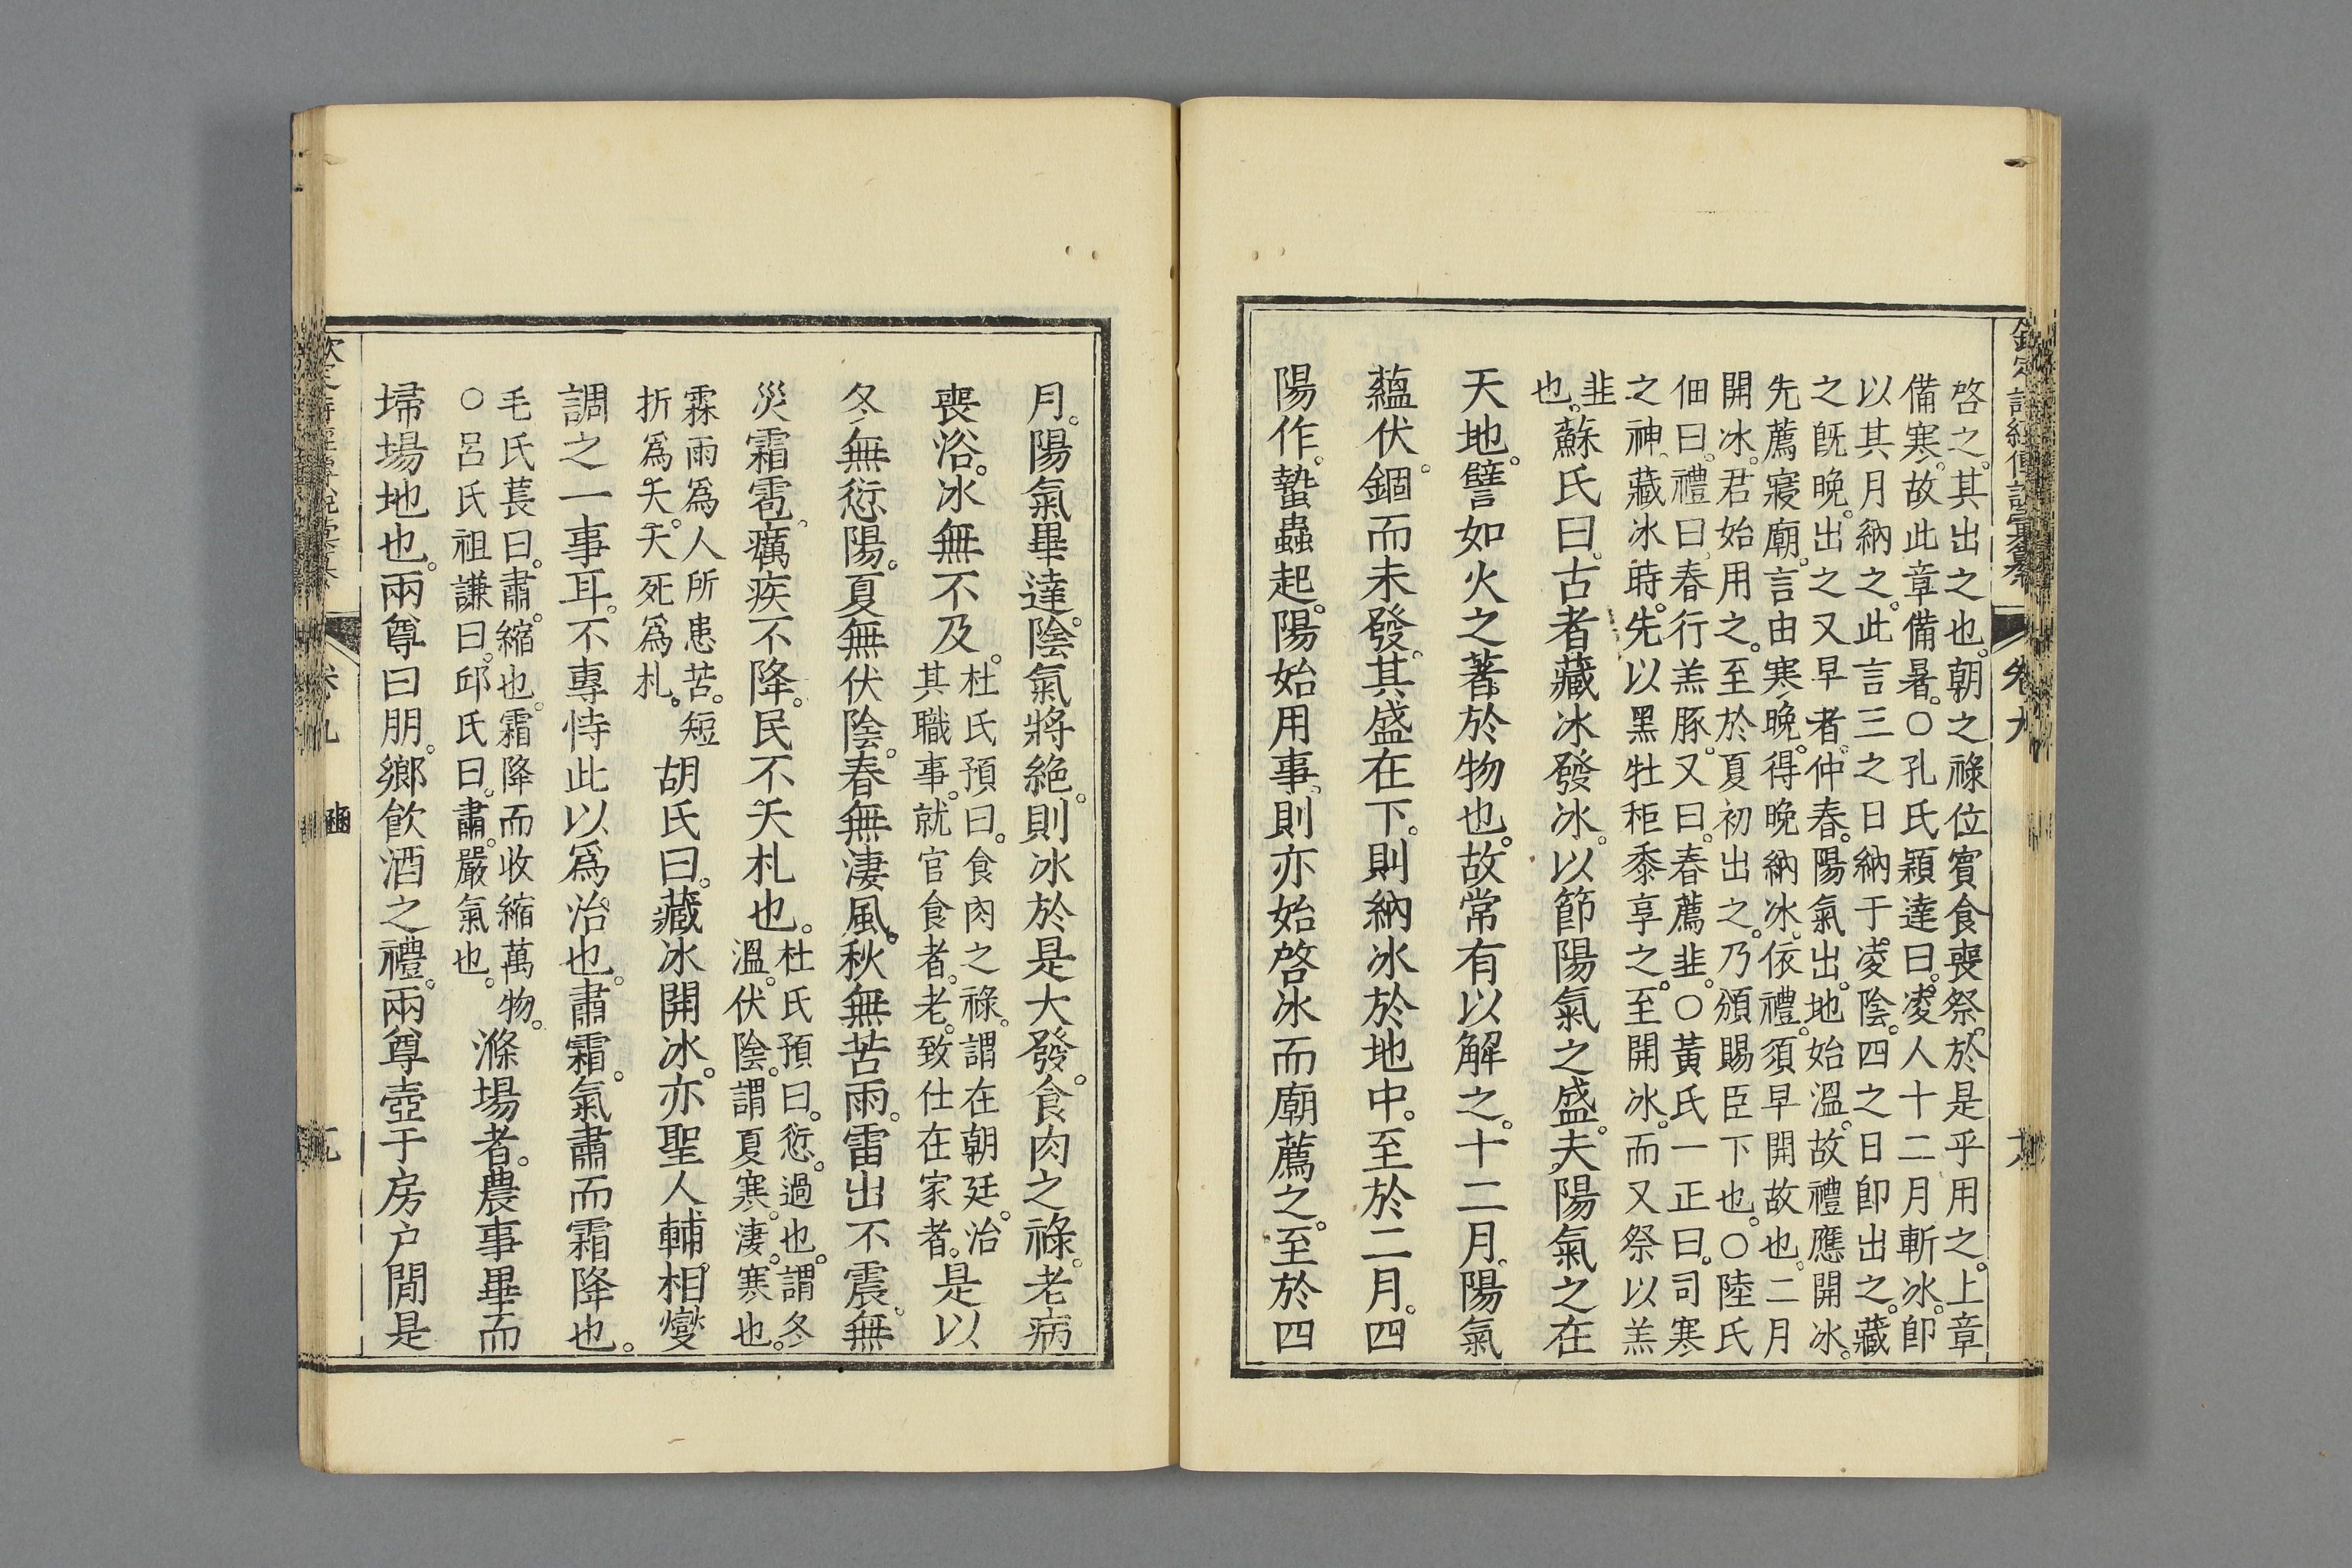 欽定詩經傳說彙纂 卷九
啓之。其出之也。朝之祿位賓食喪祭。於是乎用之。上章
備寒。故此章備暑。○孔氏穎達曰。凌人十二月斬冰。卽
以其月納之。此言三之日納于凌陰。四之日卽出之。藏
之旣晚。出之又早者。仲春。陽氣出。地始溫。故禮應開冰。
先薦寢廟。言由寒晚。得晚納冰。依禮。須早開故也。二月
開冰。君始用之。至於夏初出之。乃頒賜臣下也。○陸氏
佃曰。禮曰。春行羔豚。又曰。春薦韭。○黃氏一正曰。司寒
之神。藏冰時。先以黑牡秬黍享之。至開冰。而又祭以羔
韭
也。蘇氏曰。古者藏冰發冰。以節陽氣之盛。夫陽氣之在
天地。譬如火之著於物也。故常有以解之。十二月。陽氣
蘊伏。錮而未發。其盛在下。則納冰於地中。至於二月。四
陽作。蟄蟲起。陽始用事。則亦始啓冰而廟薦之。至於四
月。陽氣畢達。陰氣將絕。則冰於是大發。食肉之祿。老病
喪浴。冰無不及。杜氏預曰。食肉之祿。謂在朝廷。治
其職事。就官食者。老。致仕在家者。是以
冬無愆陽。夏無伏陰。春無淒風。秋無苦雨。雷出不震。無
災霜雹。癘疾不降。民不夭札也。杜氏預曰。愆。過也。謂冬
溫。伏陰。謂夏寒。淒。寒也。
霖雨爲人所患苦。短
折爲夭。夭死爲札。胡氏曰。藏冰開冰。亦聖人輔相燮
調之一事耳。不專恃此以爲治也。肅霜。氣肅而霜降也。
毛氏萇曰。肅。縮也。霜降而收縮萬物。
○呂氏祖謙曰。邱氏曰。肅。嚴氣也。滌場者。農事畢而
埽場地也。兩尊曰朋。鄉飲酒之禮。兩尊壺于房戶閒是
卷九 豳